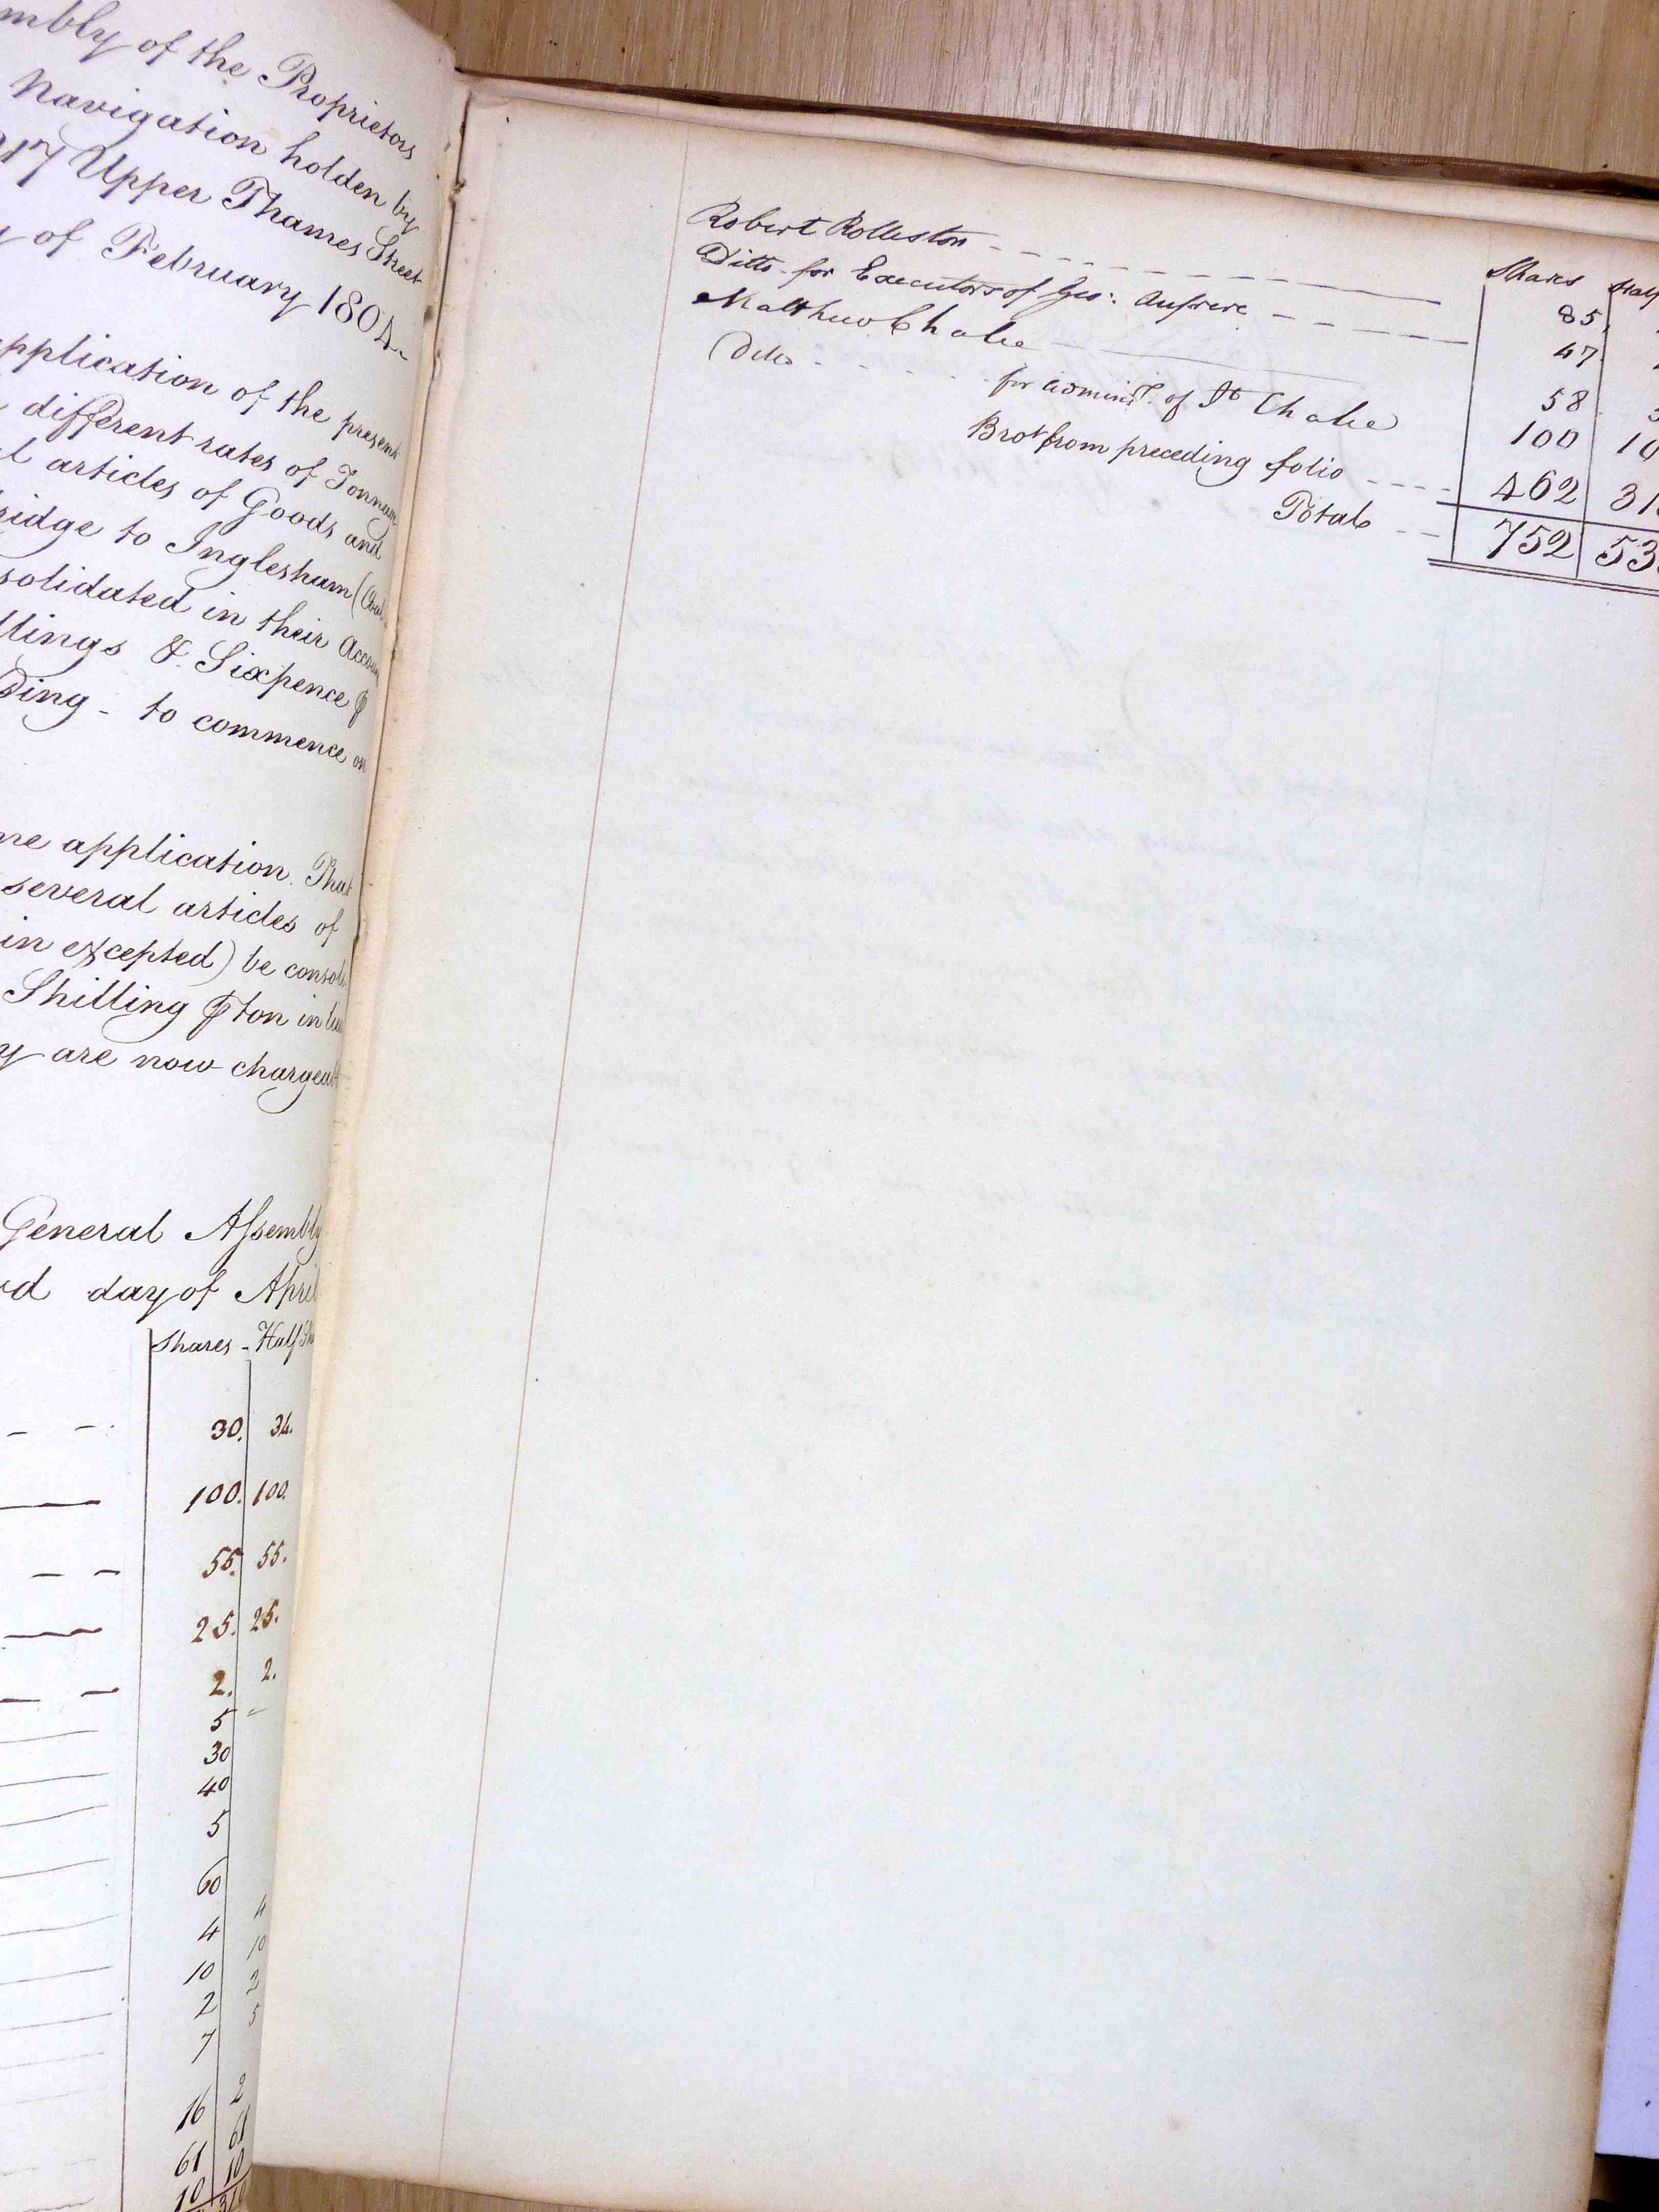 mbly of the Proprietors
Navigation holden by
217 Upper Thames Street
y of February 1804
application of the present
different rates of Tonnage
l articles of Goods and
ridge to Inglesham (Coal
solidated in their Accou
llings & Sixpence ⅌
ding - to commence on
me application. That
several articles of
in excepted) be consoli
Shilling ⅌ ton in lieu
y are now chargeab
General Assembly
rd day of April
Shares - Half Sh
30. 34.
100. 100.
55. 55.
25. 25.
2. 2.
5 -
30
40
5
60
4 4
10 10
2 2
7 5
16 2
61 61
10 10
310
Shares Half
Robert Rolleston 85
Ditto for Executors of Geo: Aufrere 47
Matthew Chalie 58
Ditto for Adminr. of Jo Chalie 100 10
Brot from preceding folio 462 31
Total 752 53